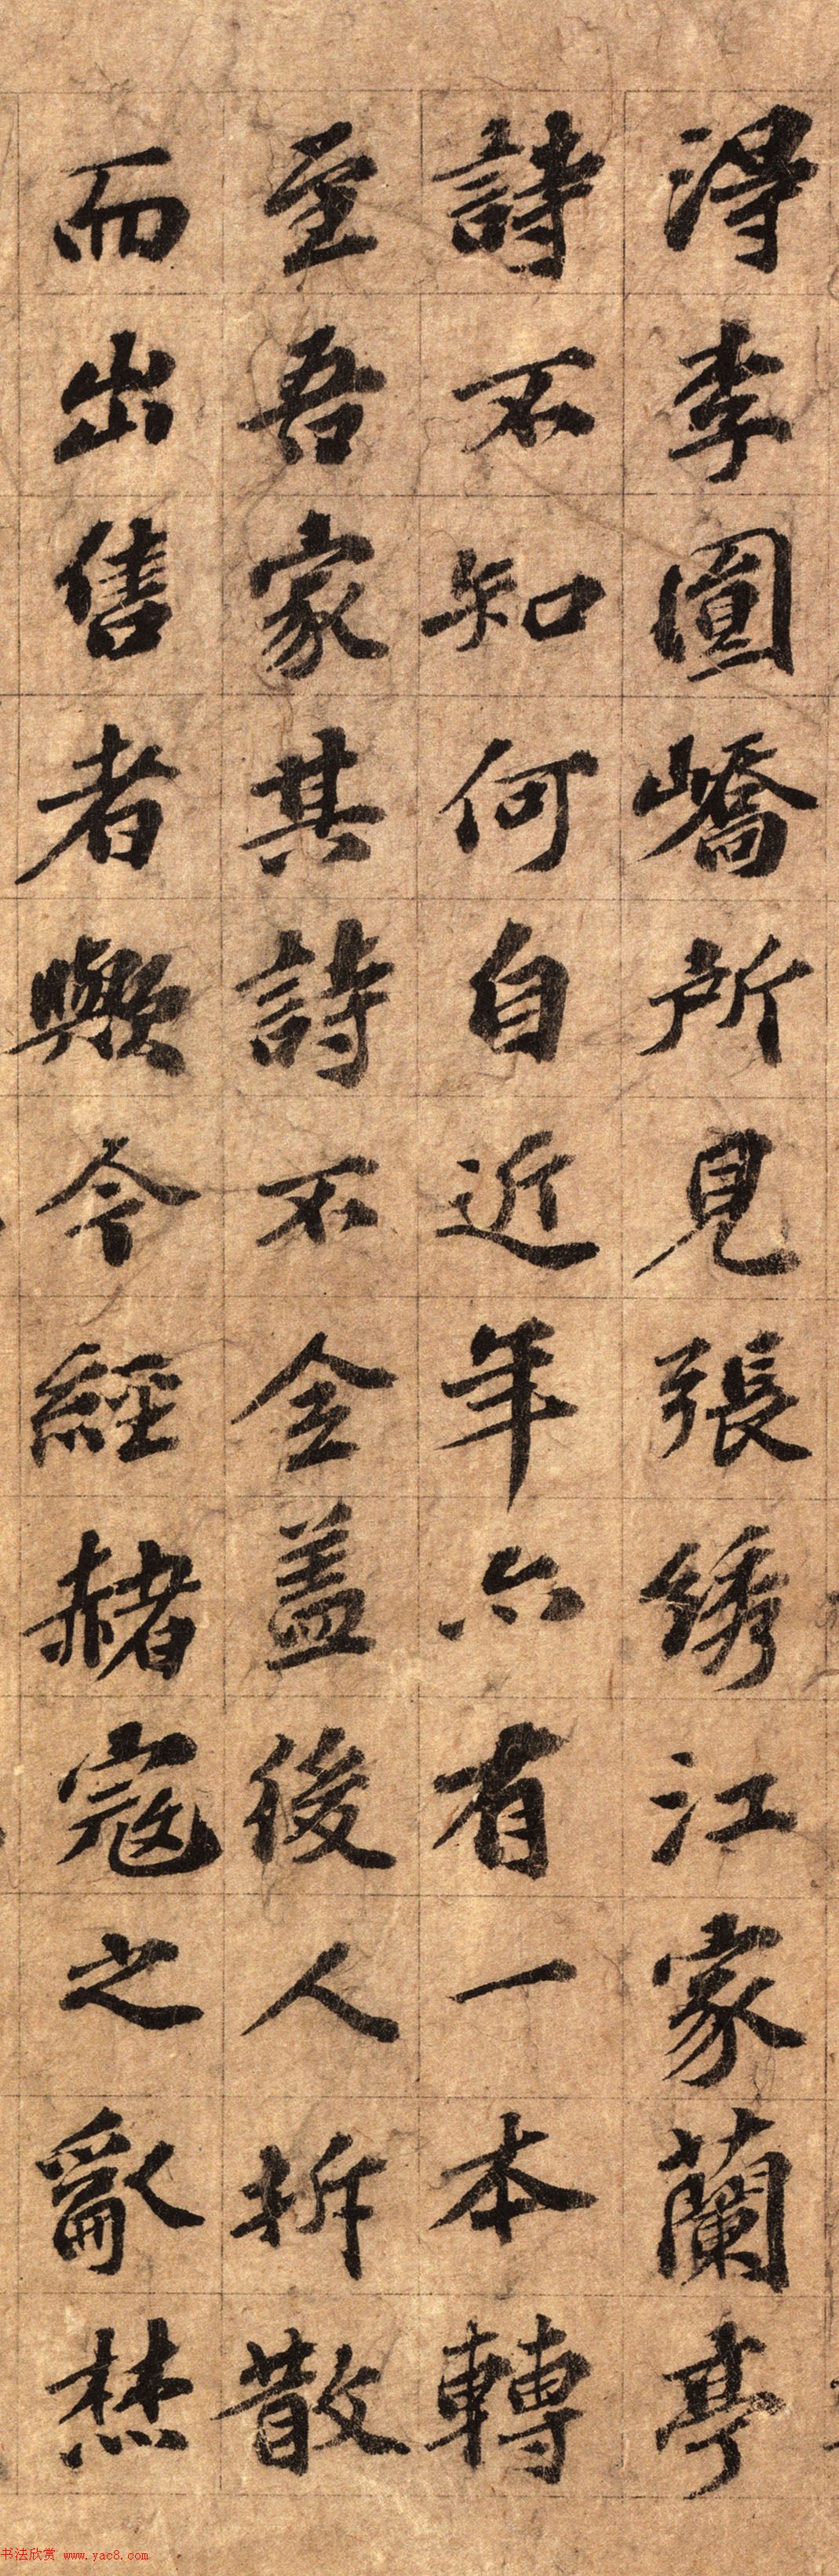 得李圖嶠所見張綉江家蘭亭
詩不知何自近年亦有一本轉
至吾家其詩不全蓋後人拆散
而出售者歟今經赭寇之亂焚
书法欣赏 www.yac8.com